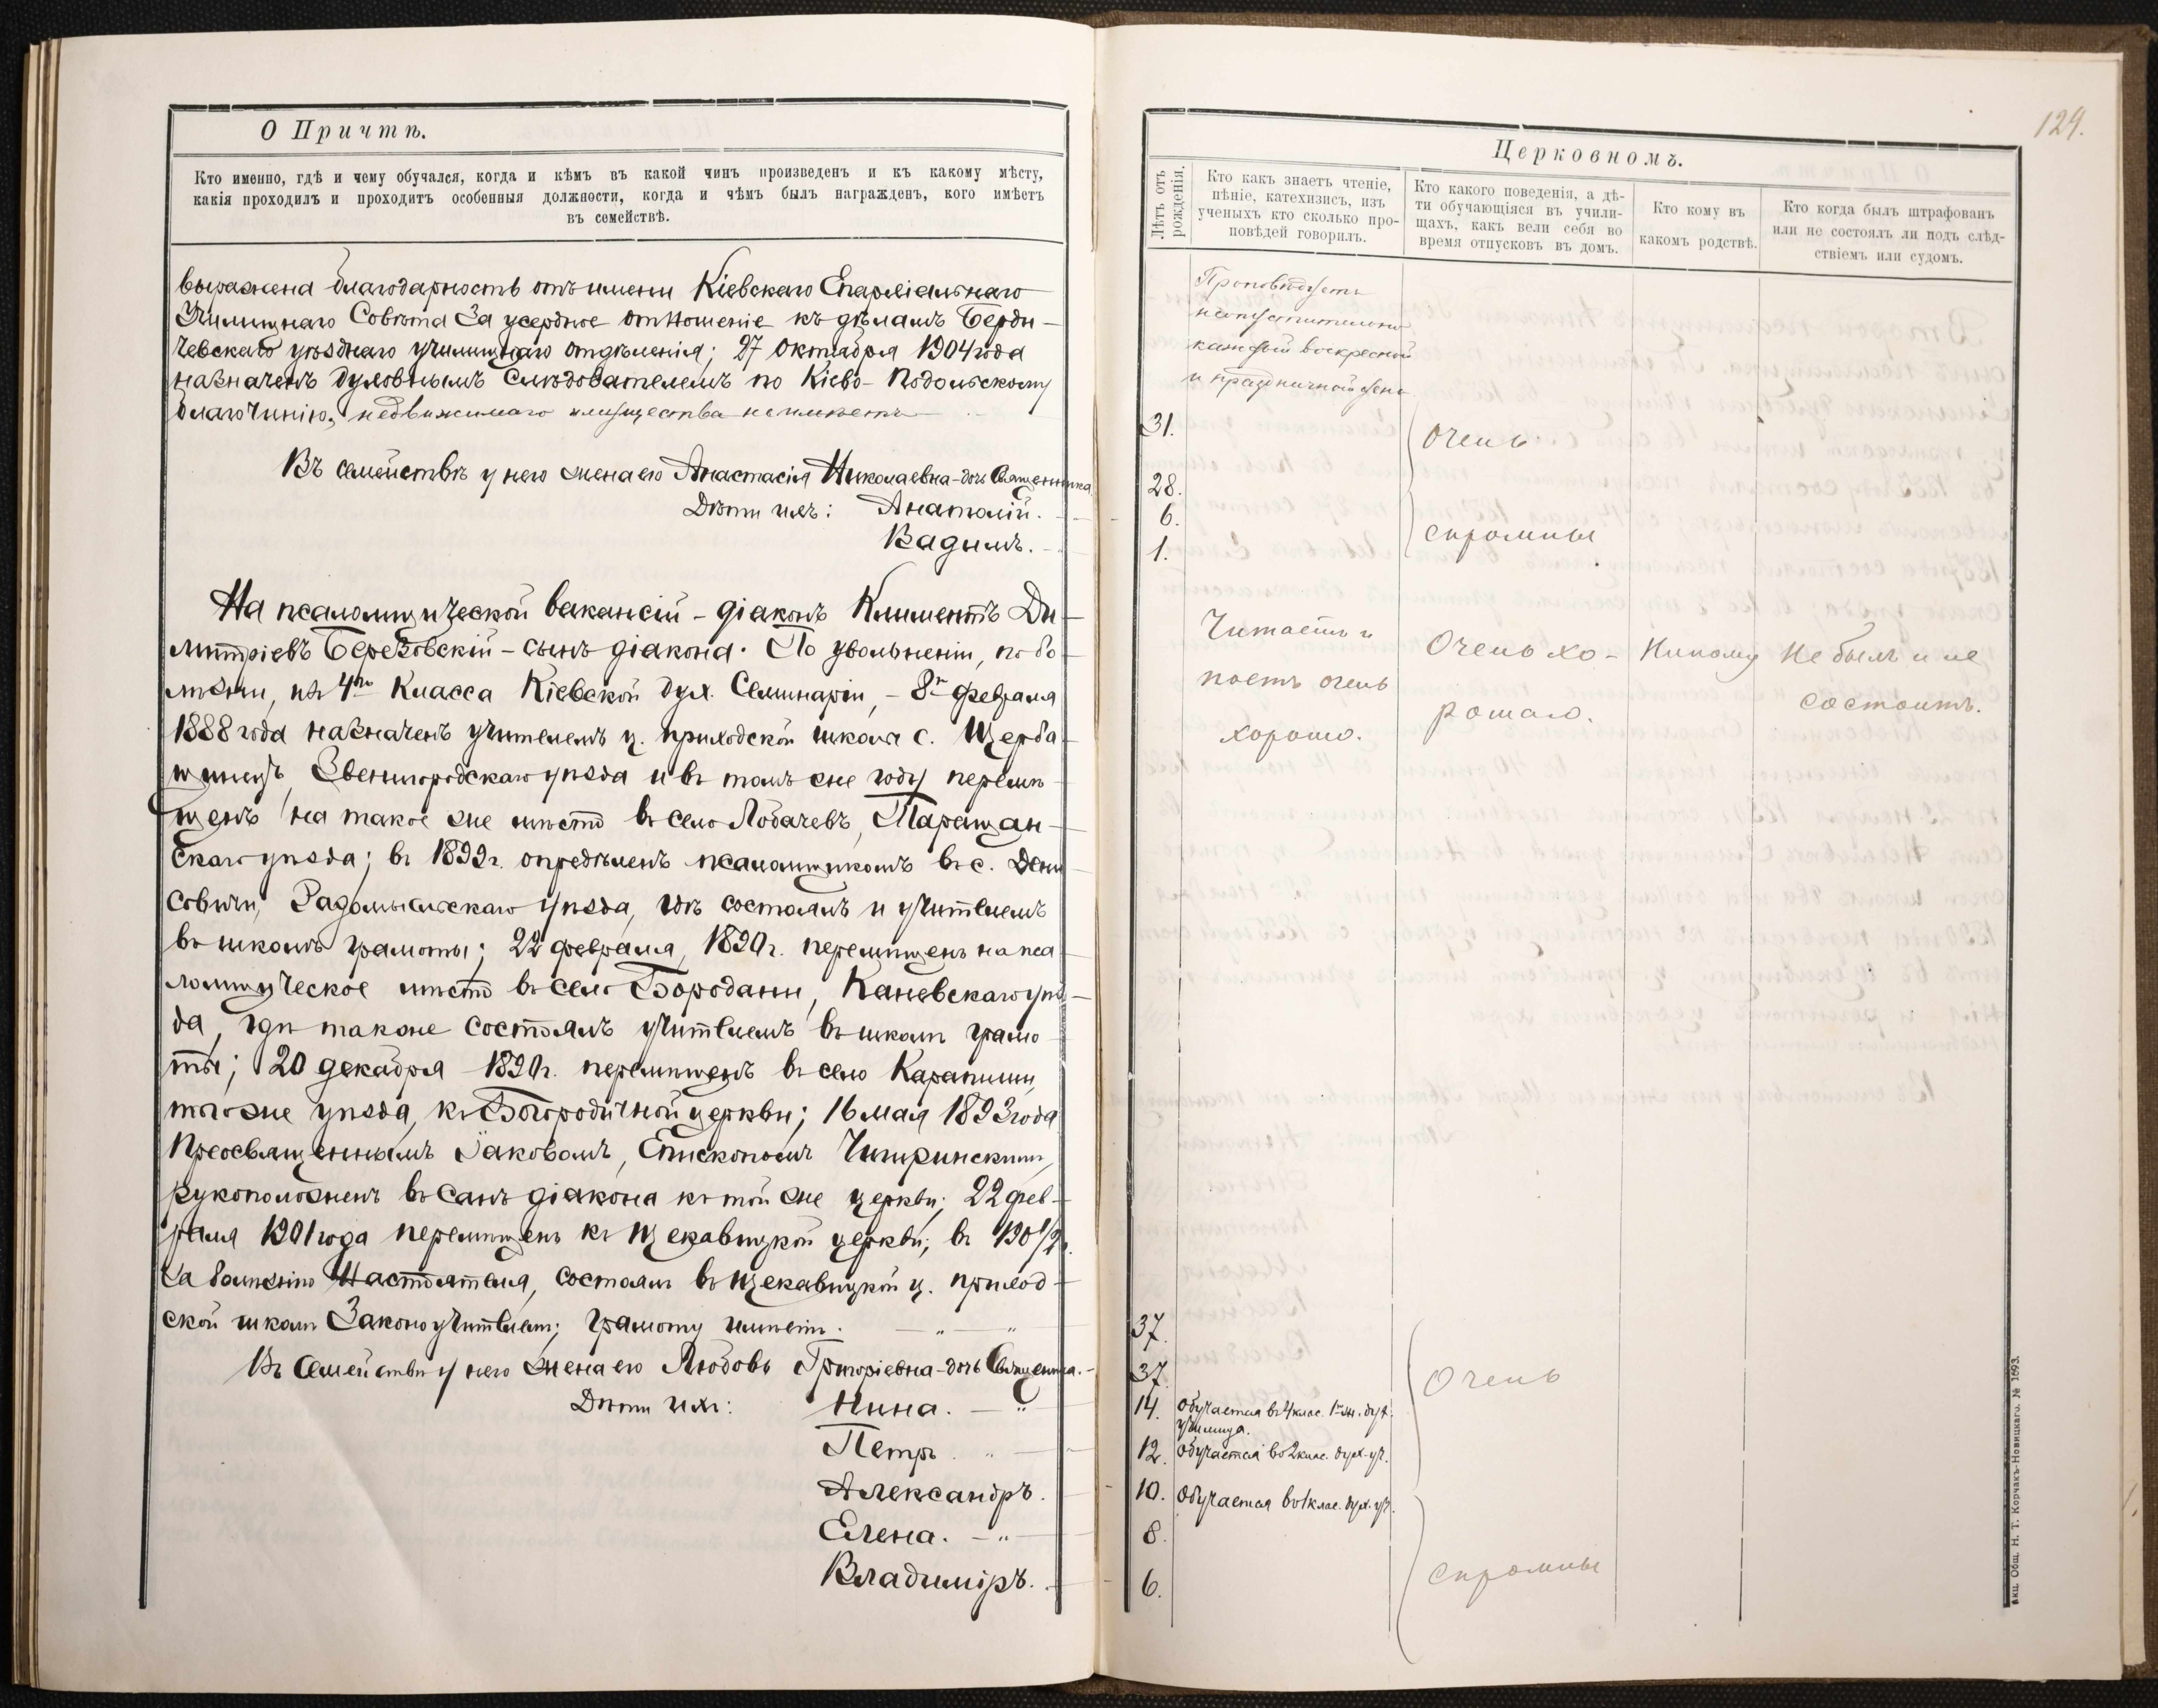 О Причтѣ.
Кто именно, гдѣ и чему обучался, когда и кѣмъ въ какой чинъ произведенъ и къ какому мѣсту,
какія проходилъ и проходитъ особенныя должности, когда и чѣмъ былъ награжденъ, кого имѣетъ
въ семействѣ.
выражена благодарность отъ имени Кіевскаго Епархіальнаго
Училищнаго Совѣта за усердное отношеніе къ дѣламъ Берди-
чевскаго уѣзднаго училищнаго отдѣленія; 27 Октября 1904 года
назначенъ духовнымъ слѣдователемъ по Кіево-Подольскому
благочинію, недвижимаго имущества не имѣетъ
Въ семействѣ у него жена его Анастасія Николаевна-дочь Священника
Дѣти ихъ: Анатолій.
Вадимъ.
На псаломщической вакансіи - діаконъ Климентъ Ди-
митріевъ Березовскій - сынъ діакона. По увольненіи, по бо-
лѣзни, изъ 4го Класса Кіевской дух. Семинаріи, - 8го февраля
1888 года назначенъ учителемъ ц. приходской школы с. Щерба-
шинецъ, Звенигородскаго уѣзда и въ томъ же году перемѣ-
щенъ на такое же мѣсто въ село Лобачевъ, Таращан-
скаго уѣзда; въ 1889 г. опредѣленъ псаломщикомъ въ с. Дени
совичи, Радомысльскаго уѣзда, гдѣ состоялъ и учителемъ
въ школѣ грамоты; 22 февраля, 1890 г. перемѣщенъ на пса
ломщическое мѣсто въ село Бородани, Каневскаго уѣз-
да, гдѣ также состоялъ учителемъ въ школѣ грамо
ты; 20 декабря 1890 г. перемѣщенъ въ село Карапиши,
того же уѣзда, къ Богородичной церкви; 16 мая 1893 года
Преосвященнымъ Іаковомъ, Епископомъ Чигиринскимъ,
рукоположенъ въ санъ діакона къ той же церкви; 22 фев-
раля 1901 года перемѣщенъ къ Щекавицкой церкви; въ 1901/2 г.
за болѣзнію Настоятеля, состоялъ въ Щекавицкой ц. приход-
ской школѣ Законоучителемъ; грамоту имѣетъ.
Въ Семействѣ у него жена его Любовь Григоріевна-дочь Священника.
Дѣти ихъ: Нина.
Петръ
Александръ.
Елена.
Владиміръ.
129.
Церковномъ.
Лѣтъ отъ
рожденія.
Кто какъ знаетъ чтеніе,
пѣніе, катехизисъ, изъ
ученыхъ кто сколько про-
повѣдей говорилъ.
Кто какого поведенія, а дѣ-
ти обучающіяся въ учили-
щахъ, какъ вели себя во
время отпусковъ въ домъ.
Кто кому въ
какомъ родствѣ.
Кто когда былъ штрафованъ
или не состоялъ ли подъ слѣд-
ствіемъ или судомъ.
Проповѣдуетъ
неопустительно
каждый воскресной
и праздничной день
31.
28.
6.
1.
Очень
скромны
Читаетъ и
поетъ очень
хорошо.
Очень хо-
рошаго.
Никому
Не былъ и не
состоитъ.
37.
37.
14. Обучается въ 4 клас. 1го жен. дух.
училища.
12. Обучается во 2 клас. дух. уч.
10. Обучается въ 1 клас. дух. уч.
8.
6.
Очень
скромны
Акц. Общ. Н. Т. Корчакъ-Новицкаго. № 1693.